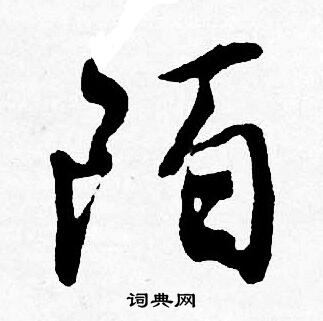 陌
词典网